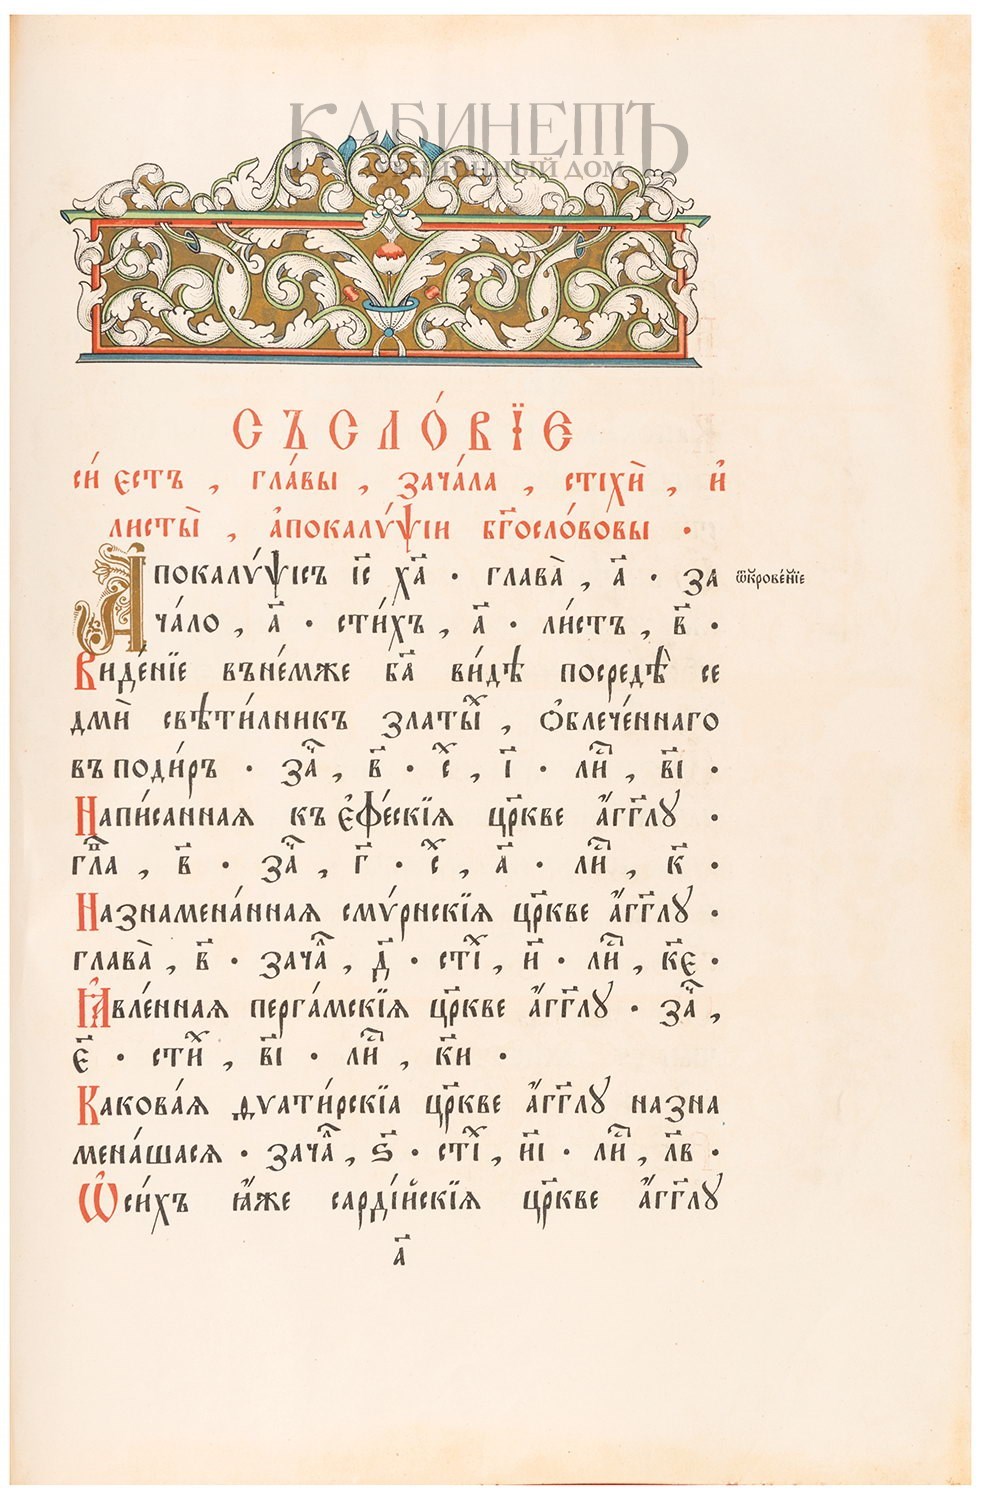 КАБИНЕТЪ
АУКЦИОННЫЙ ДОМ
СЪСЛО́ВЇЕ
си́ есть , гла́вы , зача́ла , стїхѝ , и҆
листы̀ , а҆покалѵ́ѱїи бг҃осло́вовы ·
А҆покалѵ́ѱїсъ і҃с х҃а · глава̀ , а҃ · за
ѿкрове́нїе
ча́ло , а҃ · сти́хъ , а҃ · ли́стъ , в҃ ·
Виде́нїе въне́мже б҃га ви́дѣ посредѣ̀ се
дмѝ свѣти́лникъ златы́х , ѻ҆блече́ннаго
въ поди́ръ · за҃ , в҃ · с҃ , і҃ · ли҃ , в҃і ·
Напи́санная къ є҆фе́скїя цр҃кве а҆́гг҃лꙋ ·
гла , в҃ · за҃ , г҃ · с҃ , а҃ · ли҃ , к҃ ·
Назнамена́нная смѵ́рнскїя цр҃кве а҆́гг҃лꙋ ·
глава̀ , в҃ · зача́ , д҃ · сті́ , и҃ · ли҃ , к҃є ·
Ꙗ҆вле́нная перга́мскїя цр҃кве а҆́гг҃лꙋ · за҃ ,
є҃ · сти́ , в҃і · ли҃ , к҃и ·
Какова́я ѳѵати́рскїа цр҃кве а҆́гг҃лꙋ назна
мена́шася · зача́ , ѕ҃ · сті́ , и҃і · ли҃ , л҃в ·
Ѡ си́хъ ꙗ҆́же сарді́йскїя цр҃кве а҆́гг҃лꙋ
а҃